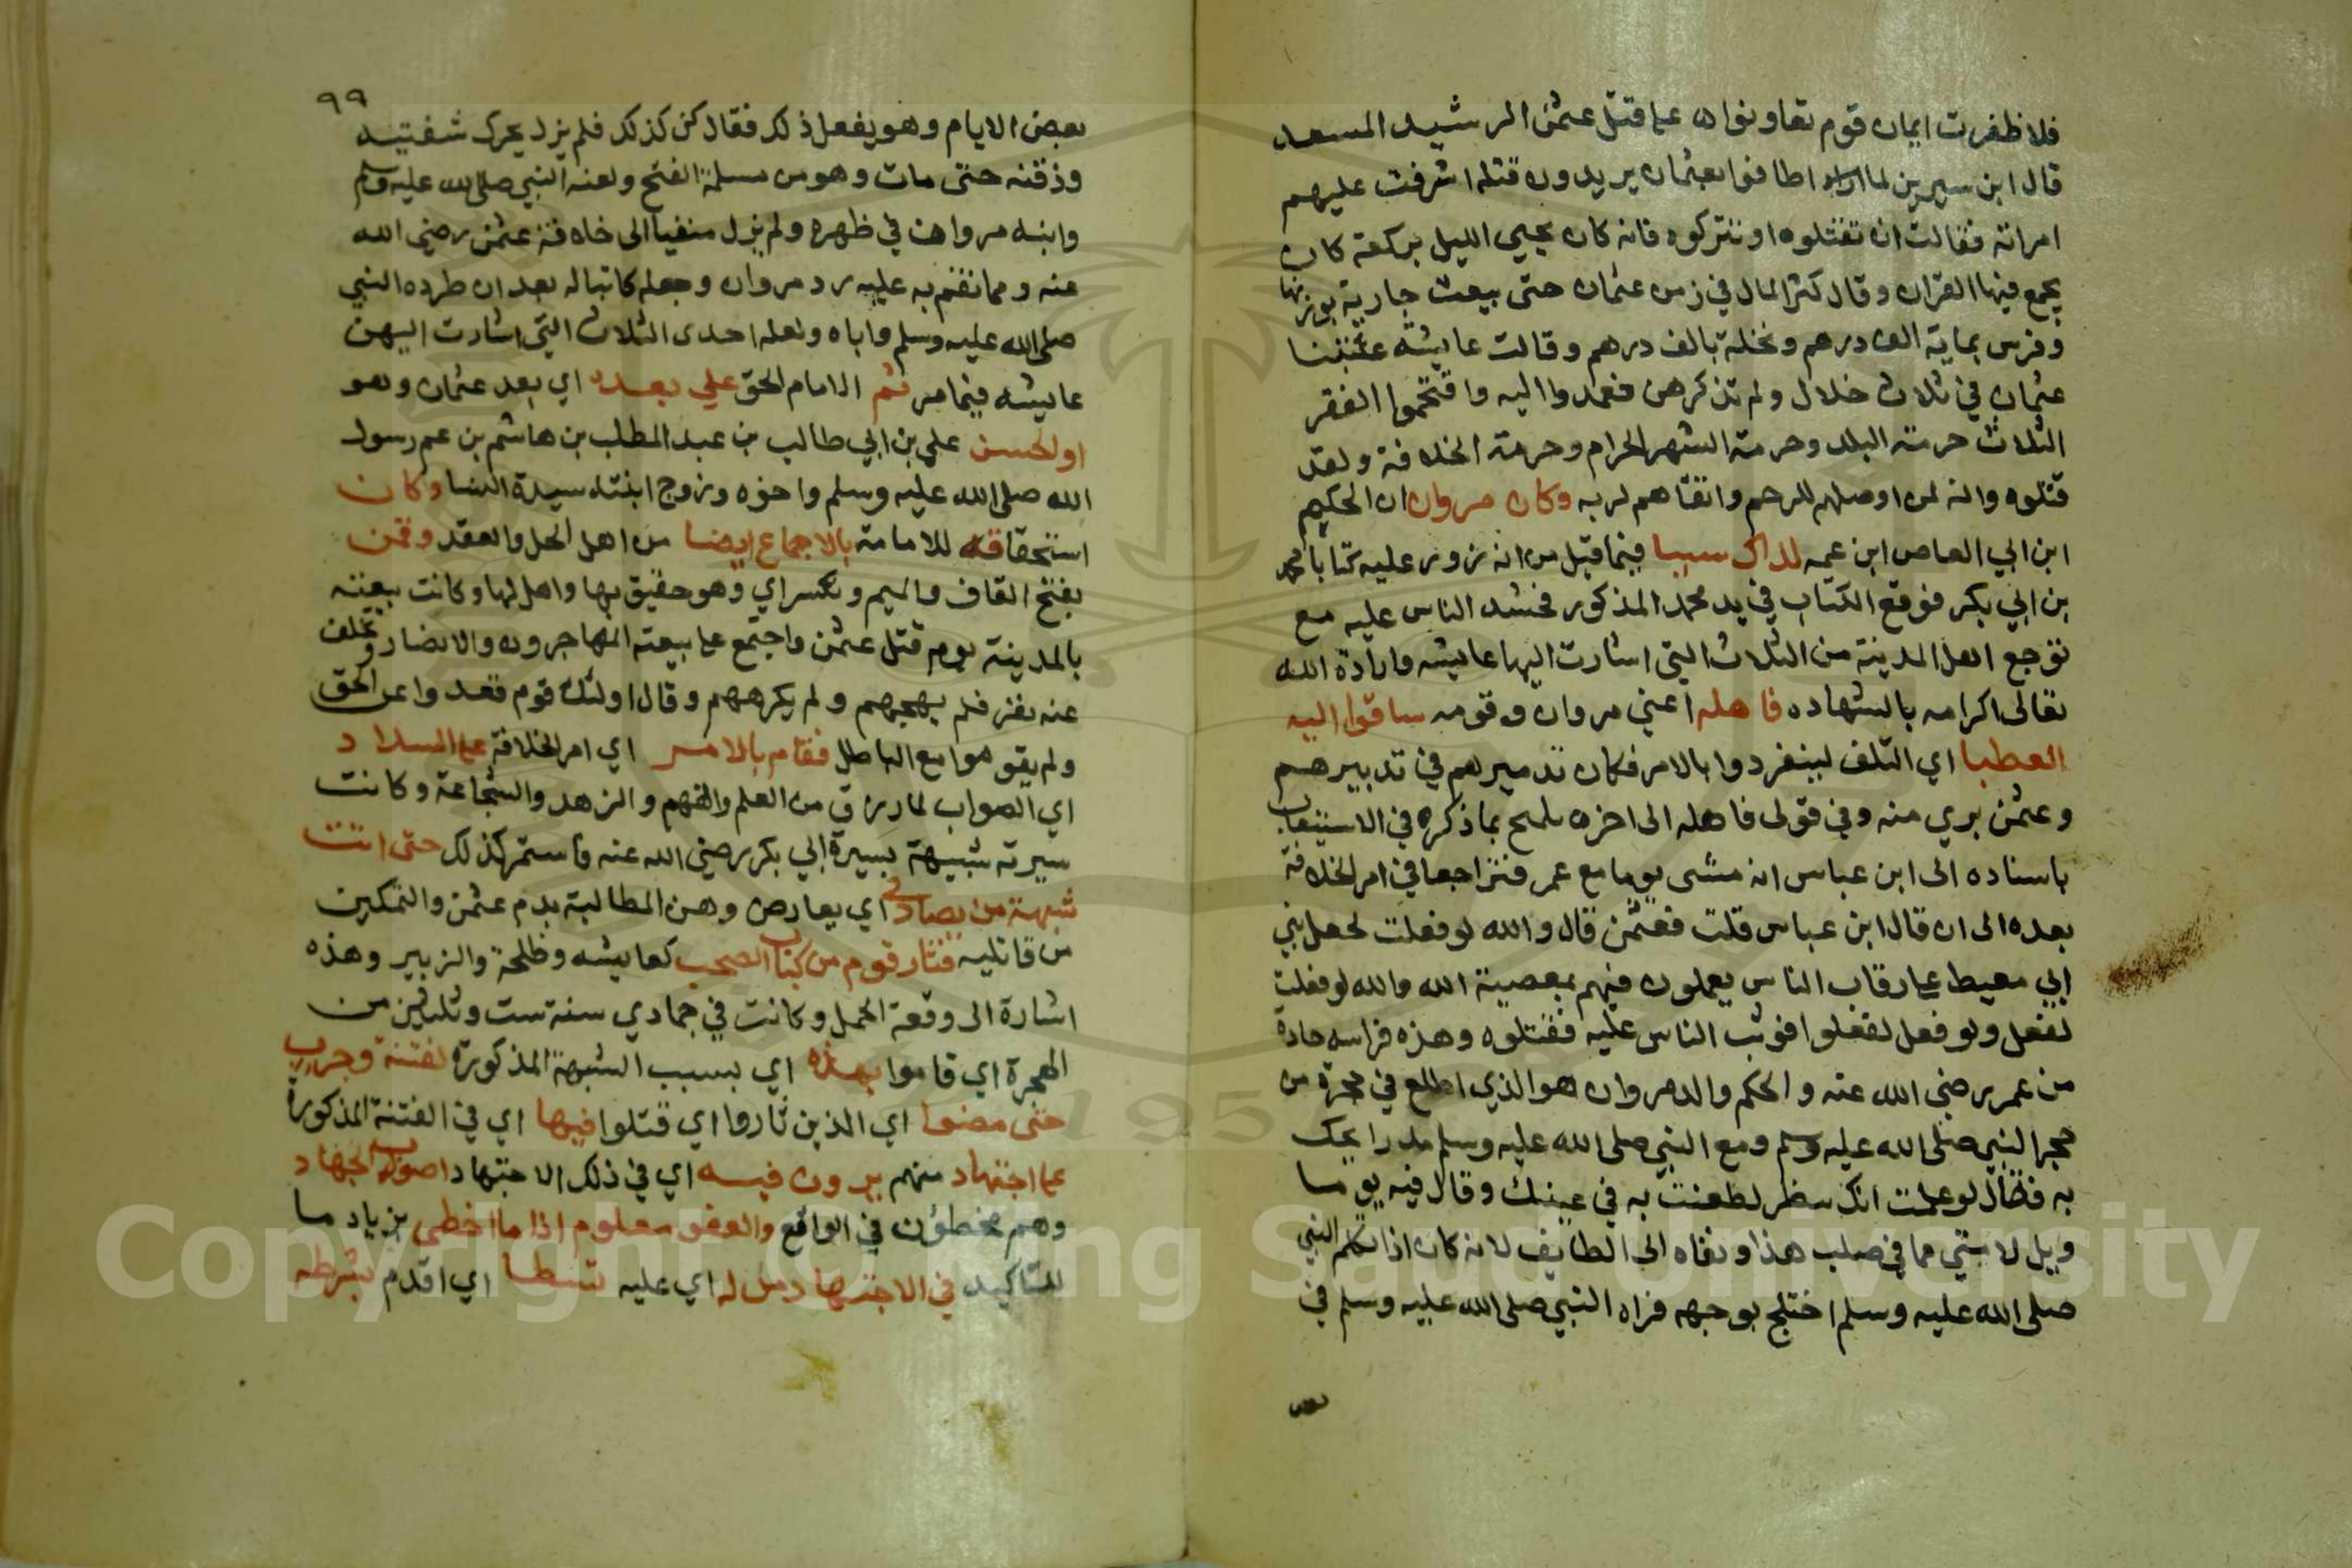 فلا ظفرت ايمان قوم تعاونوا على قتل عثمن الرشيد المسعد
قال ابن سيرين لما اطافوا بعثمان يريدون قتله اشرفت عليهم
امراته فقالت ان تقتلوه او تتركوه فانه كان يحيي الليل بركعة كان
يجمع فيها القران وقال كثر المال في زمن عثمان حتى بيعت جارية بوزنها
وفرس بماية الف درهم ونخلة بالف درهم وقالت عايشة
عثمان في ثلاث خلال ولم تذكرهن فعمدوا اليه واقتحموا الفقر
الثلاث حرمة البلد وحرمة الشهر الحرام وحرمة الخلافة ولقد
قتلوه وانه لمن اوصلهم للرحم واتقاهم لربه وكان مروان ان الحكيم
ابن ابي العاص ابن عمه لذاك سببا فيما قيل من انه زور عليه كتابا لمحمد
بن ابي بكر فوقع الكتاب في يد محمد المذكور فحشد الناس عليه مع
توجع اهل المدينة من الثلاث التي اشارت اليها عايشه وارادة الله
تعالى اكرامه بالشهاده فاهله اعني مروان وقومه ساقوا اليه
العطبا اي التلف لينفردوا بالامر فكان تدميرهم في تدبيرهم
وعثمن بري منه وفي قولي فاهله الى اخره يلمح بما ذكره في الاستيعاب
باسناده الى ابن عباس انه مشى يوما مع عمر فتراجعا في امر الخلافة
بعده الى ان قال ابن عباس قلت فعثمن قال والله لو فعلت لجعل بني
ابي معيط على رقاب الناس يعملون فيهم بمعصية الله والله لو فعلت
لفعل ولو فعل لفعلوا فوثب الناس عليه فقتلوه وهذه فراسه حادة
من عمر رضي الله عنه والحكم والد مروان هو الذي اطلع في حجرة من
حجر النبي صلى الله عليه وسلم ومع النبي صلى الله عليه وسلم مدرا يحك
به فقال لو علمت انك تنظر لطعنت به في عينك وقال فيه يوما
ويل لامتي مما في صلب هذا ونفاه الى الطايف لانه كان اذا تكلم النبي
صلى الله عليه وسلم اختلج بوجهه فراه النبي صلى الله عليه وسلم في
بعض
٩٩
بعض الايام وهو يفعل ذلك فقال كن كذلك فلم يزل يحرك شفتيه
وذقنه حتى مات وهو من مسلمة الفتح ولعنه النبي صلى الله عليه وسلم
وابنه مروان في ظهره ولم يزل منفيا الى خلافة عثمن رضي الله
عنه ومما نقم به عليه رد مروان وجعله كاتبا له بعد ان طرده النبي
صلى الله عليه وسلم واباه ولعله احدى الثلاث التي اشارت اليهن
عايشه فيما مر ثم الامام الحق علي بعده اي بعد عثمان وهو
ابو الحسن علي بن ابي طالب بن عبد المطلب بن هاشم بن عم رسول
الله صلى الله عليه وسلم واخوه وزوج ابنته سيدة النسا وكان
استحقاقه للامامة بالاجماع ايضا من اهل الحل والعقد وقمن
بفتح القاف والميم وبكسر اي وهو حقيق بها واهل لها وكانت بيعته
بالمدينة يوم قتل عثمن واجتمع على بيعته المهاجرون والانصار وتخلف
عنه نفر فلم يهجهم ولم يكرههم وقال اولئك قوم قعدوا عن الحق
ولم يقوموا مع الباطل فقام بالامر اي امر الخلافة على السداد
اي الصواب لما رزق من العلم والفهم والزهد والشجاعة وكانت
سيرته شبيهة بسيرة ابي بكر رضي الله عنه فاستمر كذلك حتى اتت
شبهة من اي يعارض وهن المطالبة بدم عثمن والتمكين
من قاتليه فثار قوم من كبار الصحب كعايشه وطلحة والزبير وهذه
اشارة الى وقعة الجمل وكانت في جمادي سنة ست وثلثين من
الهجرة اي قاموا بهذه اي بسبب الشبهة المذكورة لفتنة وحرب
حتى مضوا اي الذين ثاروا اي قتلوا فيها اي في الفتنة المذكورة
على اجتهاد منهم يرون فيه اي في ذلك الاجتهاد اصوب الجهاد
وهم مخطؤن في الواقع والعفو معلوم اذا ما اخطى بزياد ما
للتاكيد في الاجتهاد من له اي عليه تسطا اي اقدم بشرطه